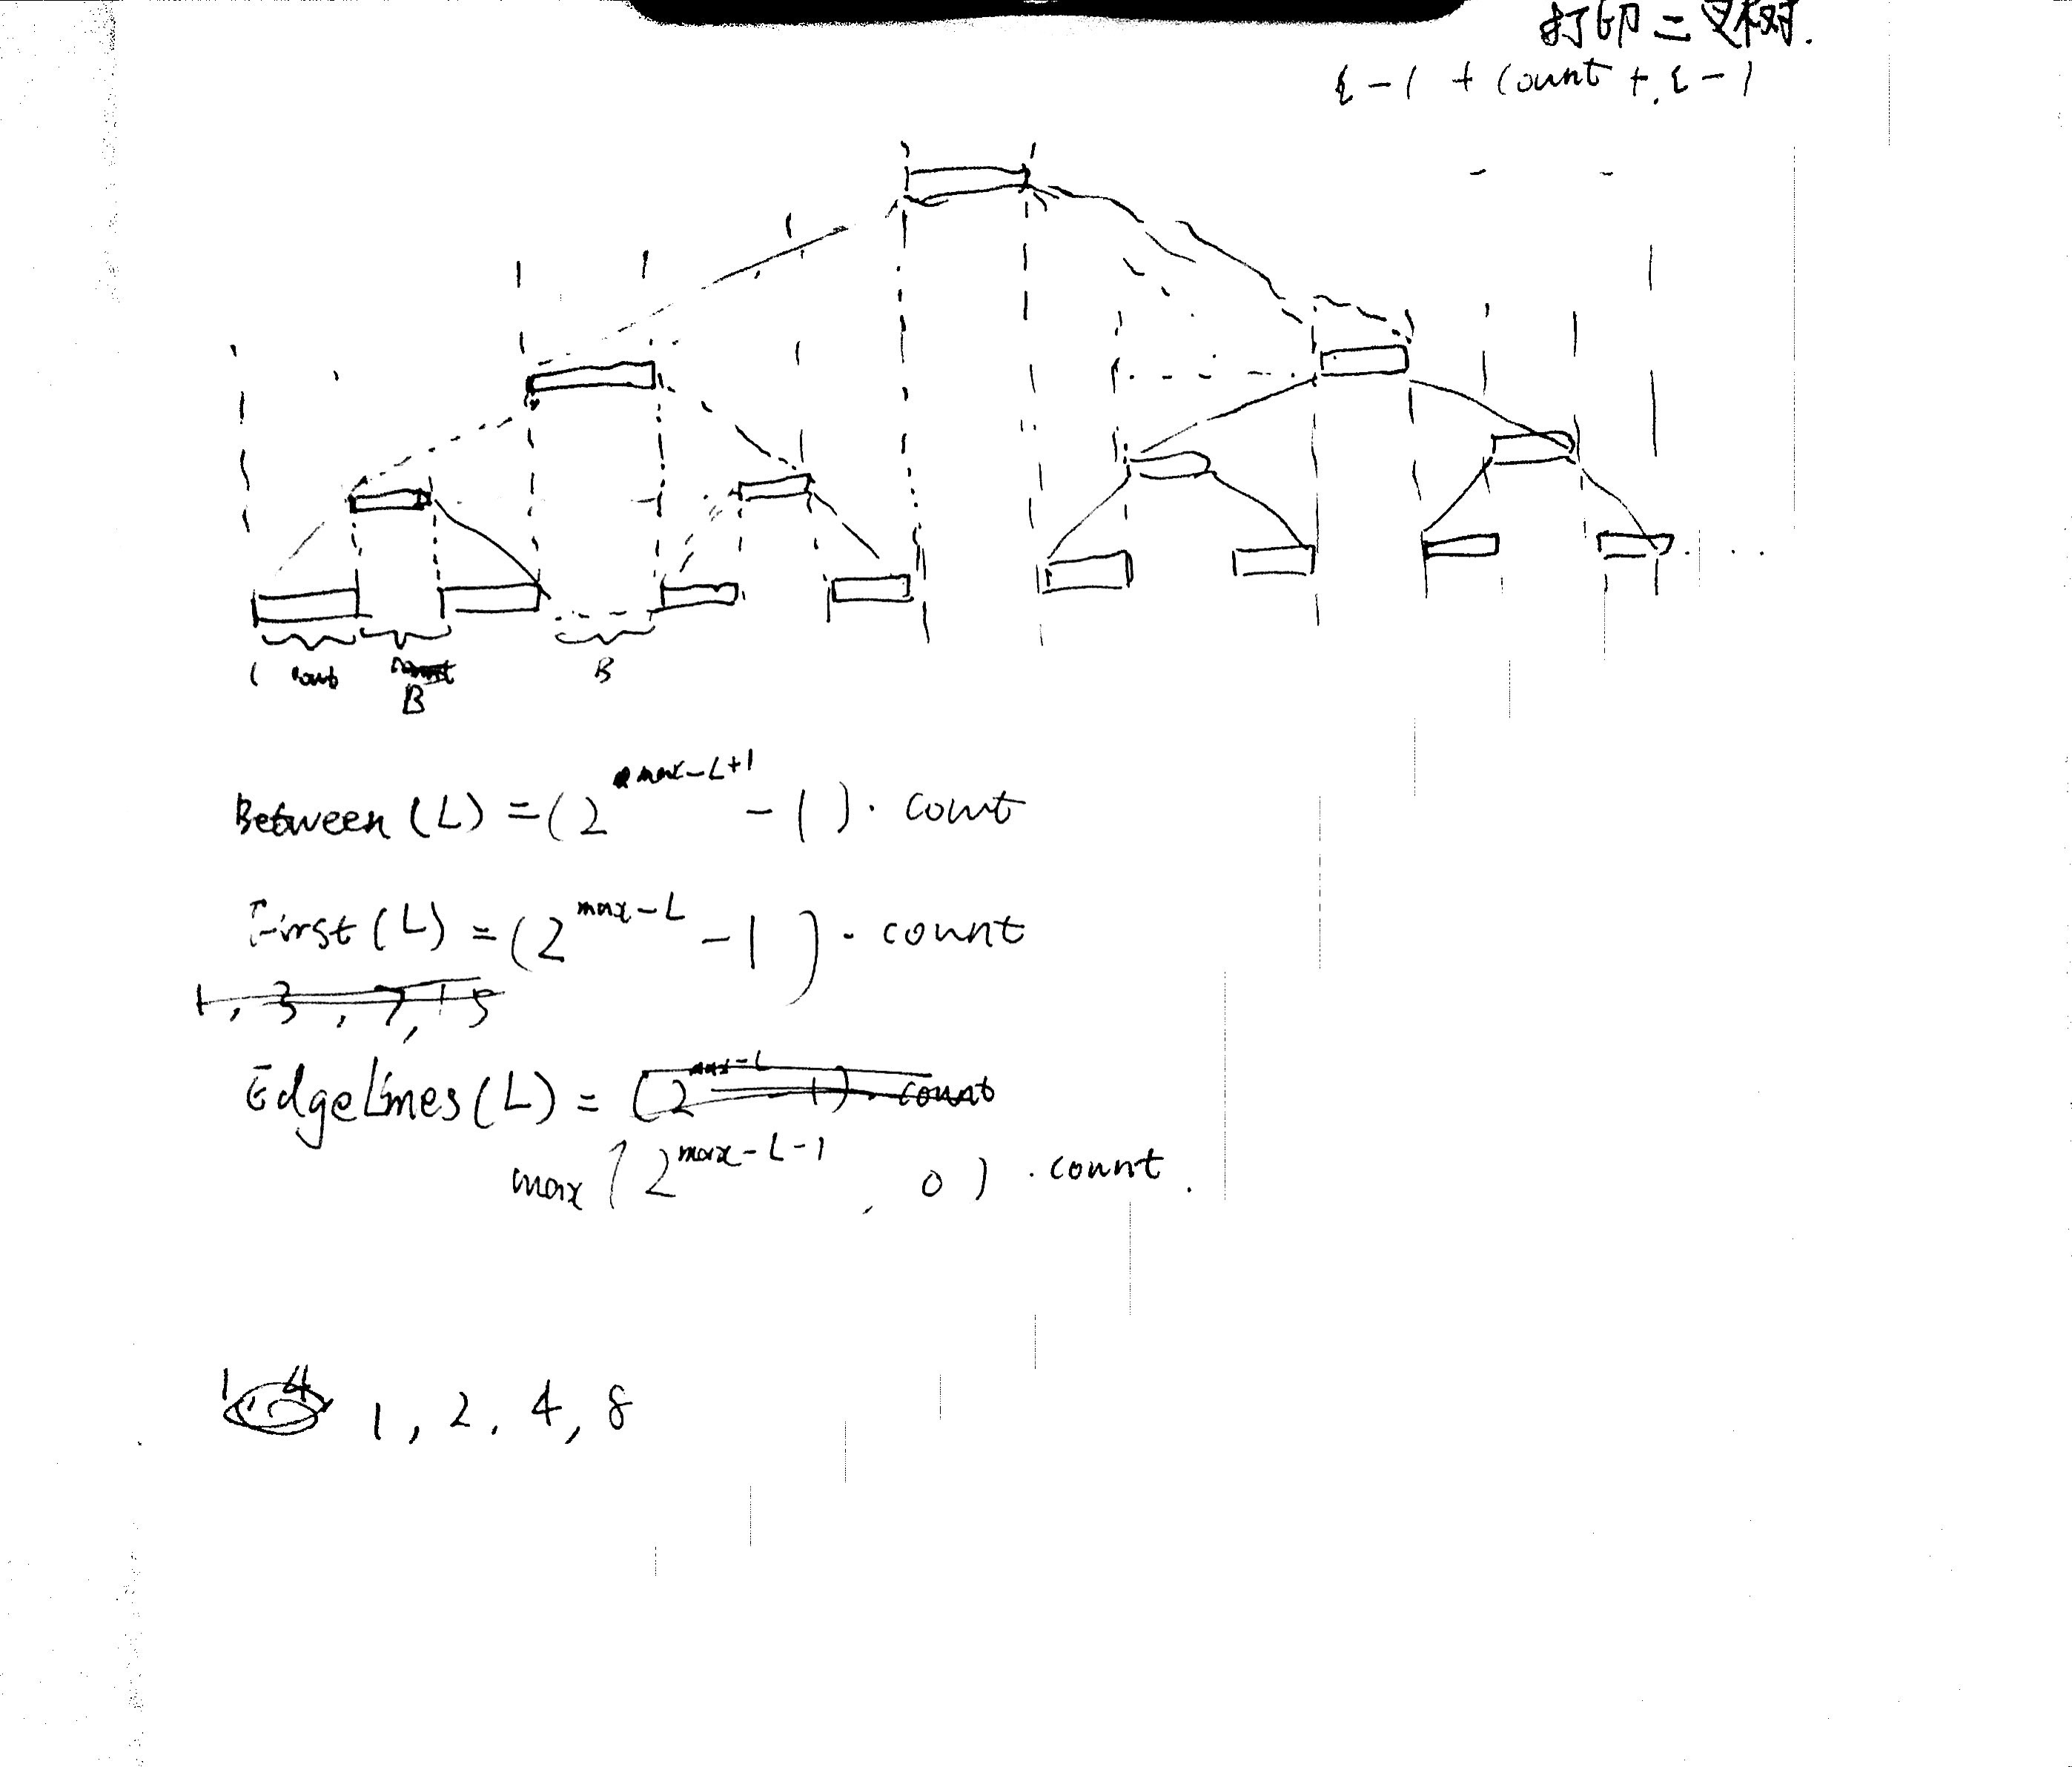 打印二叉树.
i-1 + count + i-1
1 count B B
Between (L) = (2^max-L+1 - 1) · count
First (L) = (2^max-L - 1) · count
1, 3, 7, 15
EdgeLines (L) = (2^max-L - 1) · count
max (2^max-L-1, 0) · count.
1 4 1, 2, 4, 8